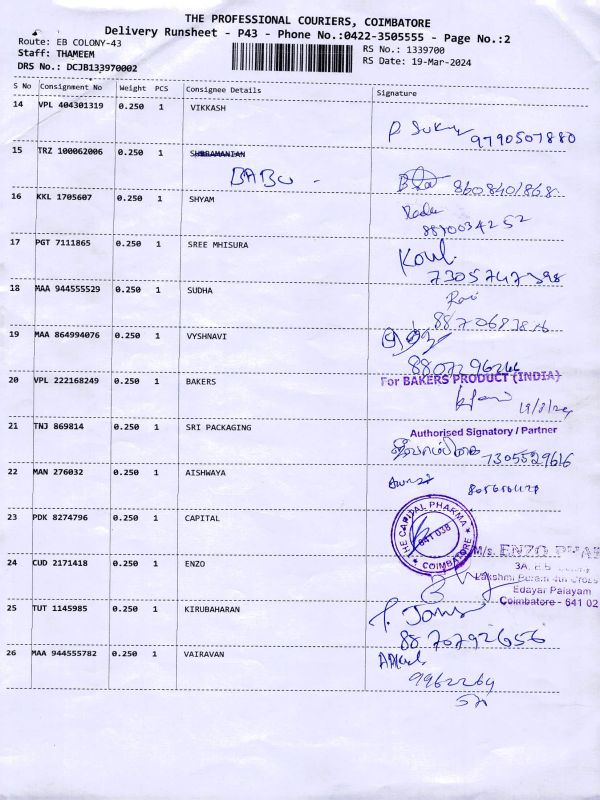 THE PROFESSIONAL COURIERS, COIMBATORE
Delivery Runsheet - P43 - Phone No.:0422-3505555 - Page No.:2
Route: EB COLONY-43
RS No.: 1339700
Staff: THAMEEM
RS Date: 19-Mar-2024
DRS No.: DCJB133970002
S No Consignment No Weight PCS Consignee Details Signature
14 VPL 404301319 0.250 1 VIKKASH
9790507880
15 TRZ 100062006 0.250 1 SUBRAMANIAN
BABU
8608401868
16 KKL 1705607 0.250 1 SHYAM
8870034252
17 PGT 7111865 0.250 1 SREE MHISURA
18 MAA 944555529 0.250 1 SUDHA
19 MAA 864994076 0.250 1 VYSHNAVI
20 VPL 222168249 0.250 1 BAKERS
For BAKERS PRODUCT (INDIA)
21 TNJ 869814 0.250 1 SRI PACKAGING
Authorised Signatory / Partner
7305529616
22 MAN 276032 0.250 1 AISHWAYA
23 PDK 8274796 0.250 1 CAPITAL
THE CAPITAL PHARMA
641 038
COIMBATORE
24 CUD 2171418 0.250 1 ENZO
M/s. ENZO PHAR
Edayar Palayam
Coimbatore - 641 02
25 TUT 1145985 0.250 1 KIRUBAHARAN
8870792656
26 MAA 944555782 0.250 1 VAIRAVAN